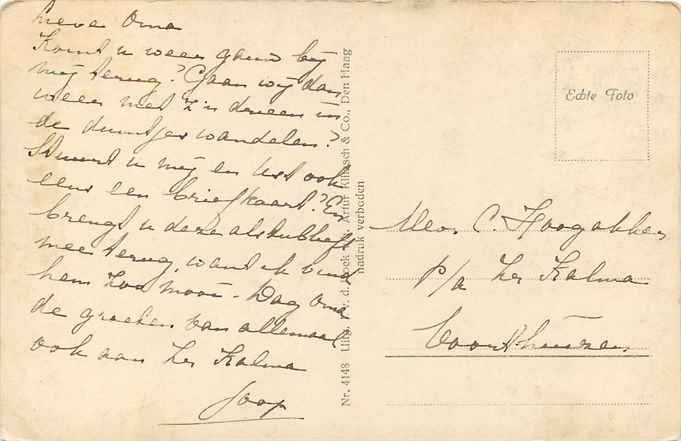 Lieve Oma
Komt u weer gauw bij
mij terug? Gaan wij dan
weer met z'n drieen in
de duintjes wandelen?
Stuurt u mij en ook
eens een briefkaart? En
brengt u deze alstublieft
mee terug, want ik vind
hem zoo mooi. Dag Oma
de groeten van allemaal
ook aan Zr Kalma
Joop
Nr. 4148 Artur Klitzsch & Co., Den Haag
nadruk verboden
Echte Foto
Mevr. C. Hoogakker
p/a Zr Kalma
Voorthuizen